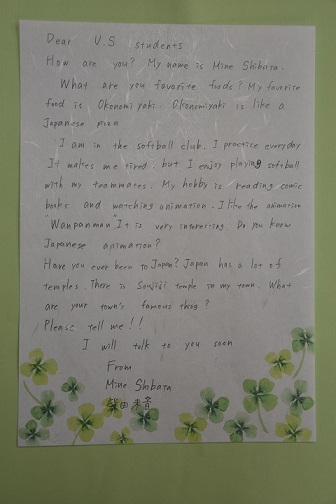 Dear U.S students
How are you? My name is Mine Shibata.
What are you favorite foods? My favorite
food is Okonomiyaki. Okonomiyaki is like a
Japanese pizza
I am in the softball club. I practice everyday
It makes me tired. but I enjoy playing softball
with my teammates. My hobby is reading comic
books and watching animation. I like the animation
"Wanpanman" It is very interesting. Do you know
Japanese animation?
Have you ever been to Japan? Japan has a lot of
temples. There is Soujiji temple in my town. What
are your town's famous thing?
Please tell me!!
I will talk to you soon
From
Mine Shibata
柴田